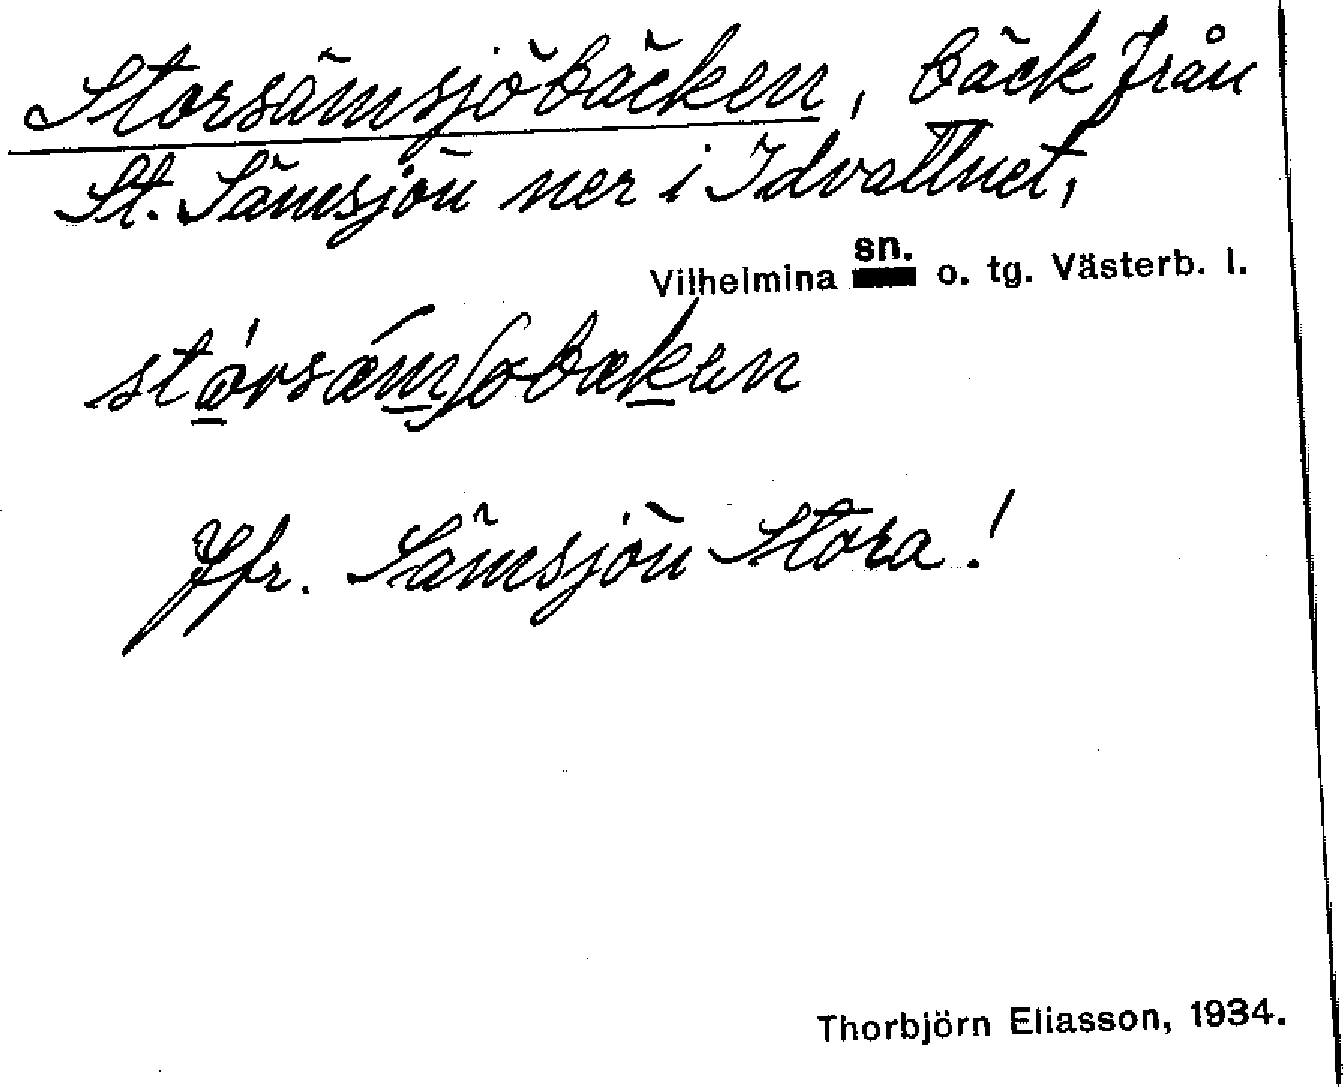 Storsämsjöbäcken, bäck från
St. Sämsjön ner i Idvattnet,
Vilhelmina sn. o. tg. Västerb. l.
Jfr. Sämsjön Stora!
Thorbjörn Eliasson, 1934.